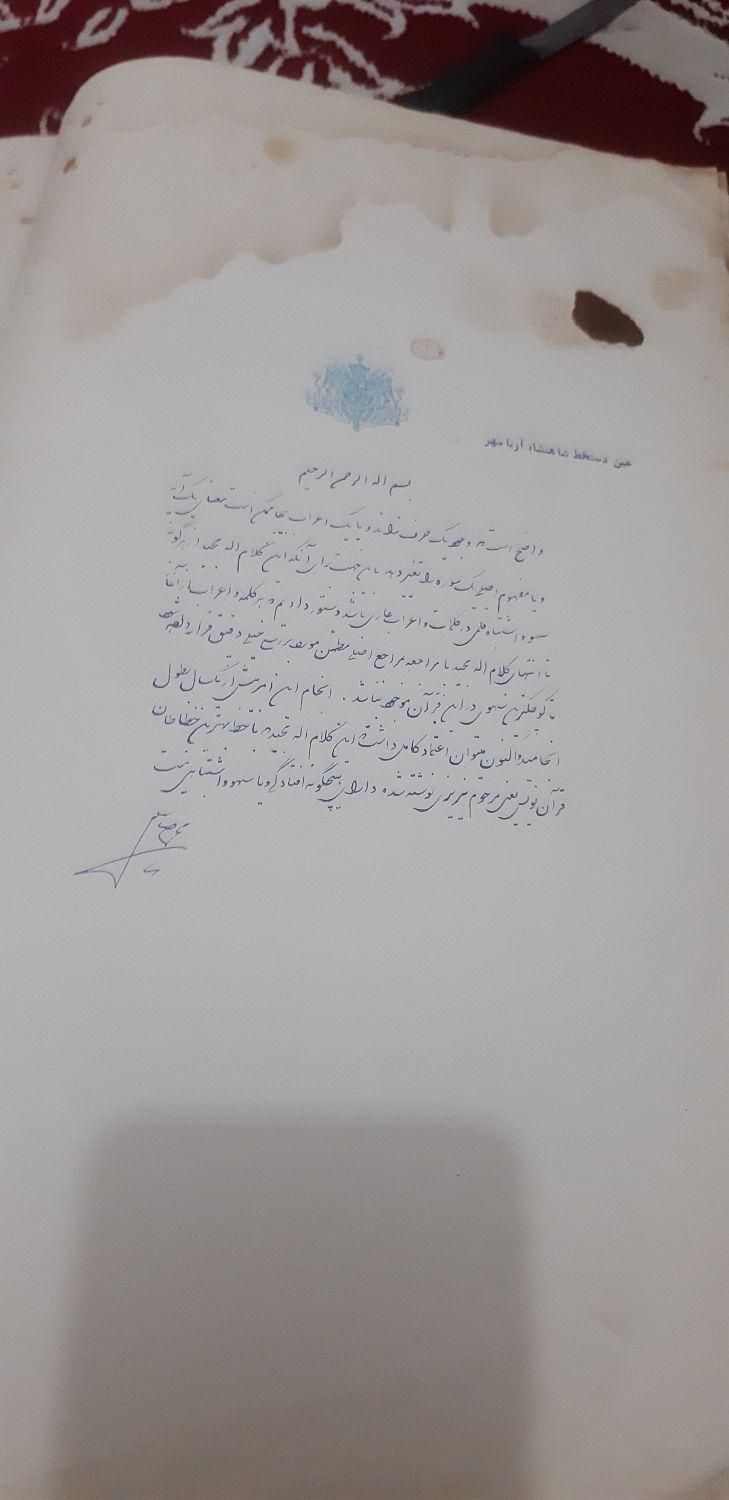 عین دستخط شاهنشاه آریا مهر
بسم اله الرحمن الرحیم
واضح است که وجود یک حرف زائد و یا یک اعراب بیجا ممکن است معنای یک آیه
و یا مفهوم اصلی یک سوره را تغییر دهد باین جهت برای آنکه این کلام اله مجید از هرگونه
سهو و اشتباه قلمی در کلمات و اعراب عاری باشد دستور دادیم که هر کلمه و اعراب از آغاز
تا انتهای کلام اله مجید با مراجعه بمراجع اصلی مطمئن مورد بررسی خیلی دقیق قرار داده شود
تا کوچکترین سهوی در این قرآن موجود نباشد. انجام این امر بیش از یکسال بطول
انجامید و اکنون میتوان اعتماد کامل داشت که این کلام اله مجید که با خط بهترین خطاطان
قرآن نویس یعنی مرحوم نیریزی نوشته شده دارای هیچگونه افتادگی و یا سهو و اشتباهی نیست